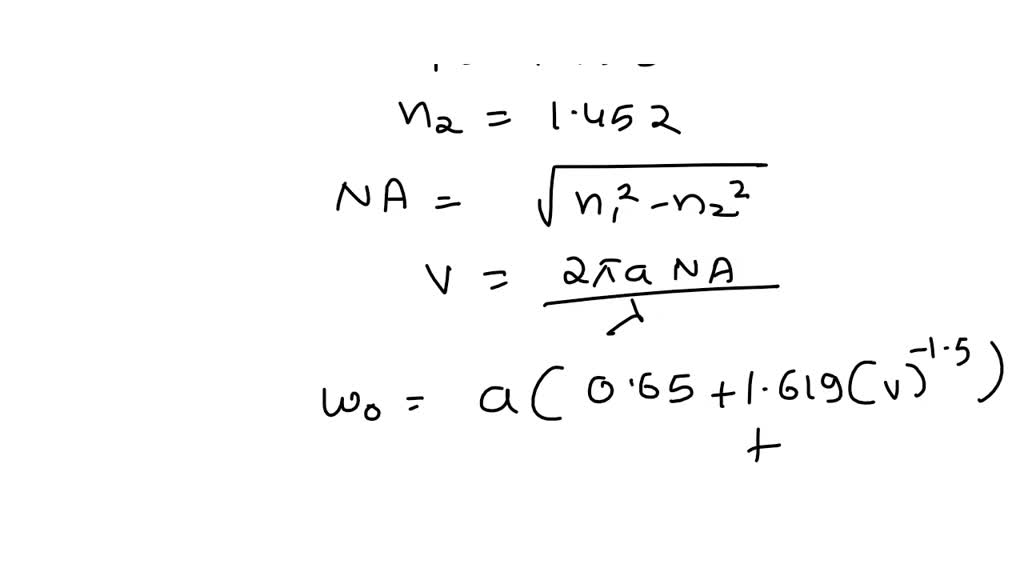 n₂ = 1.452
NA = √(n₁² - n₂²)
V = 2πa NA / λ
w₀ = a ( 0.65 + 1.619 (v)^-1.5 )
+